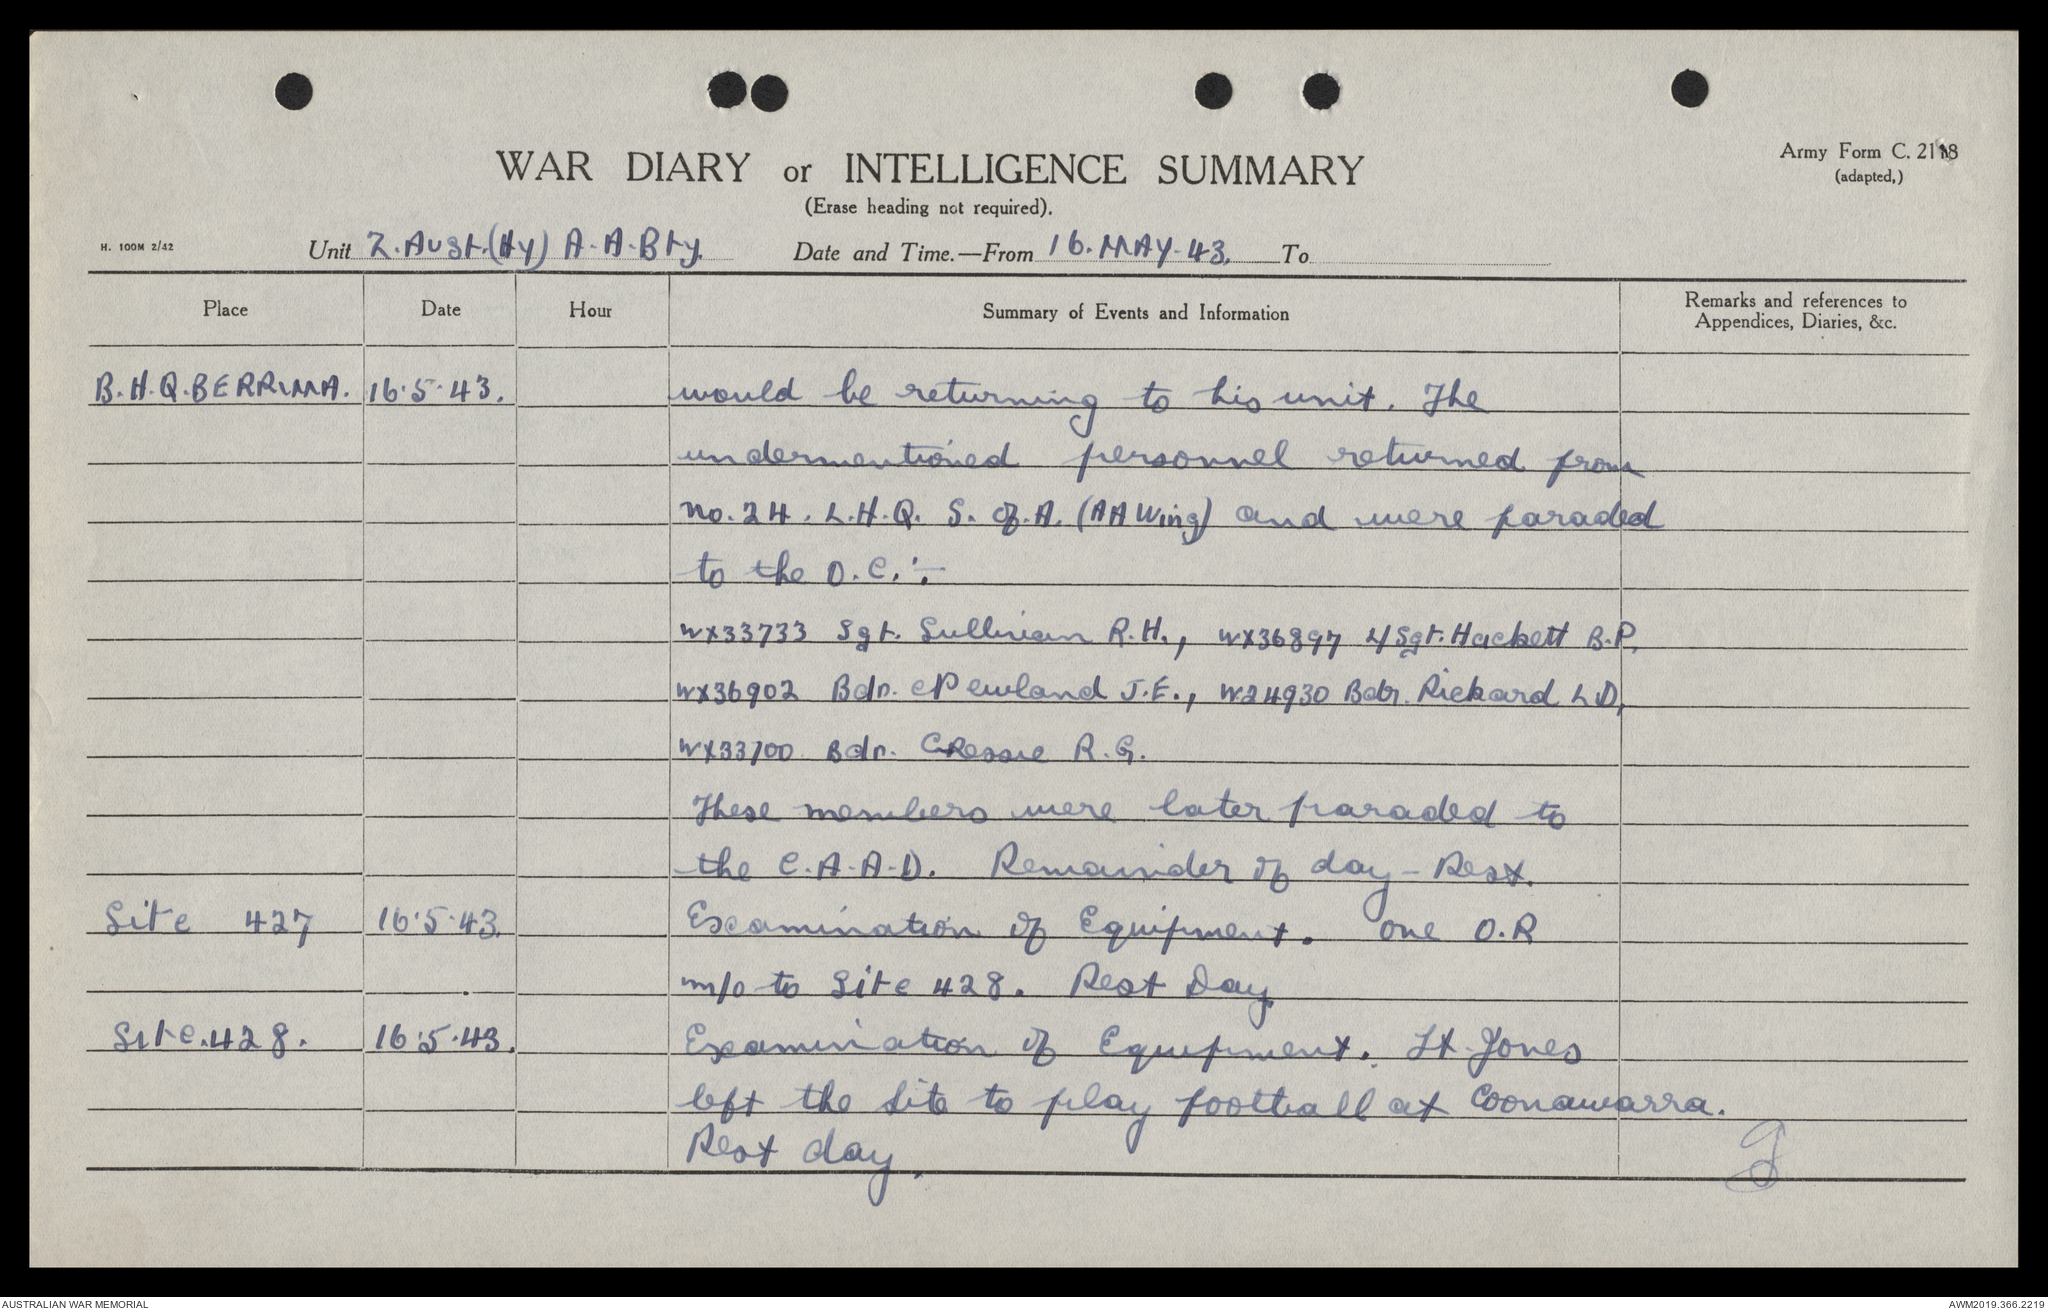 WAR DIARY or INTELLIGENCE SUMMARY
Army Form C. 2118
(adapted,)
(Erase heading not required).
H. 100M 2/42
Unit 2.Aust.(Hy) A.A.Bty.
Date and Time.—From 16.MAY.43. To
Place
Date
Hour
Summary of Events and Information
Remarks and references to
Appendices, Diaries, &c.
B.H.Q.BERRIMA. 16.5.43. would be returning to his unit. The
undermentioned personnel returned from
No.24. L.H.Q. S. of.A. (AA Wing) and were paraded
to the O.C.:-
WX33733 Sgt. Sullivan R.H., WX36897 L/Sgt. Hackett B.P.
WX36902 Bdr. Newland J.E., W24930 Bdr. Rickard L.D,
WX33700 Bdr. Cressie R.G.
These members were later paraded to
the C.A.A.D. Remainder of day - Rest.
Site 427 16.5.43. Examination of Equipment. One O.R
m/o to Site 428. Rest Day
Site.428. 16.5.43. Examination of Equipment. Lt Jones
left the site to play football at Coonawarra.
Rest day.
AUSTRALIAN WAR MEMORIAL
AWM2019.366.2219